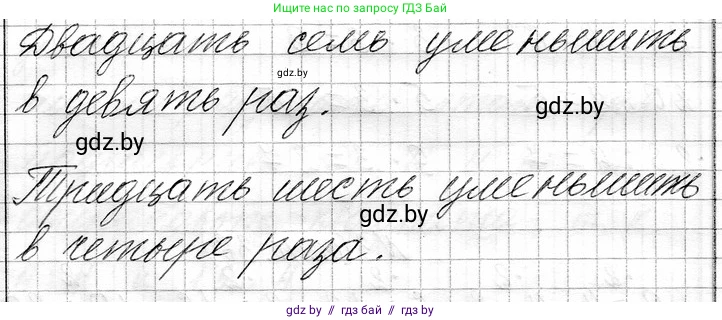 Ищите нас по запросу ГДЗ Бай
Двадцать семь уменьшить
gdz.by
в девять раз.
gdz.by
gdz.by
Тридцать шесть уменьшить
gdz.by
в четыре раза.
gdz.by // гдз бай // gdz.by